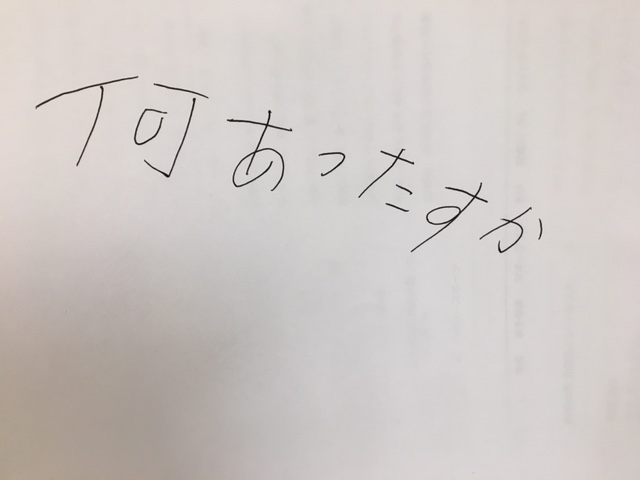 何あったすか